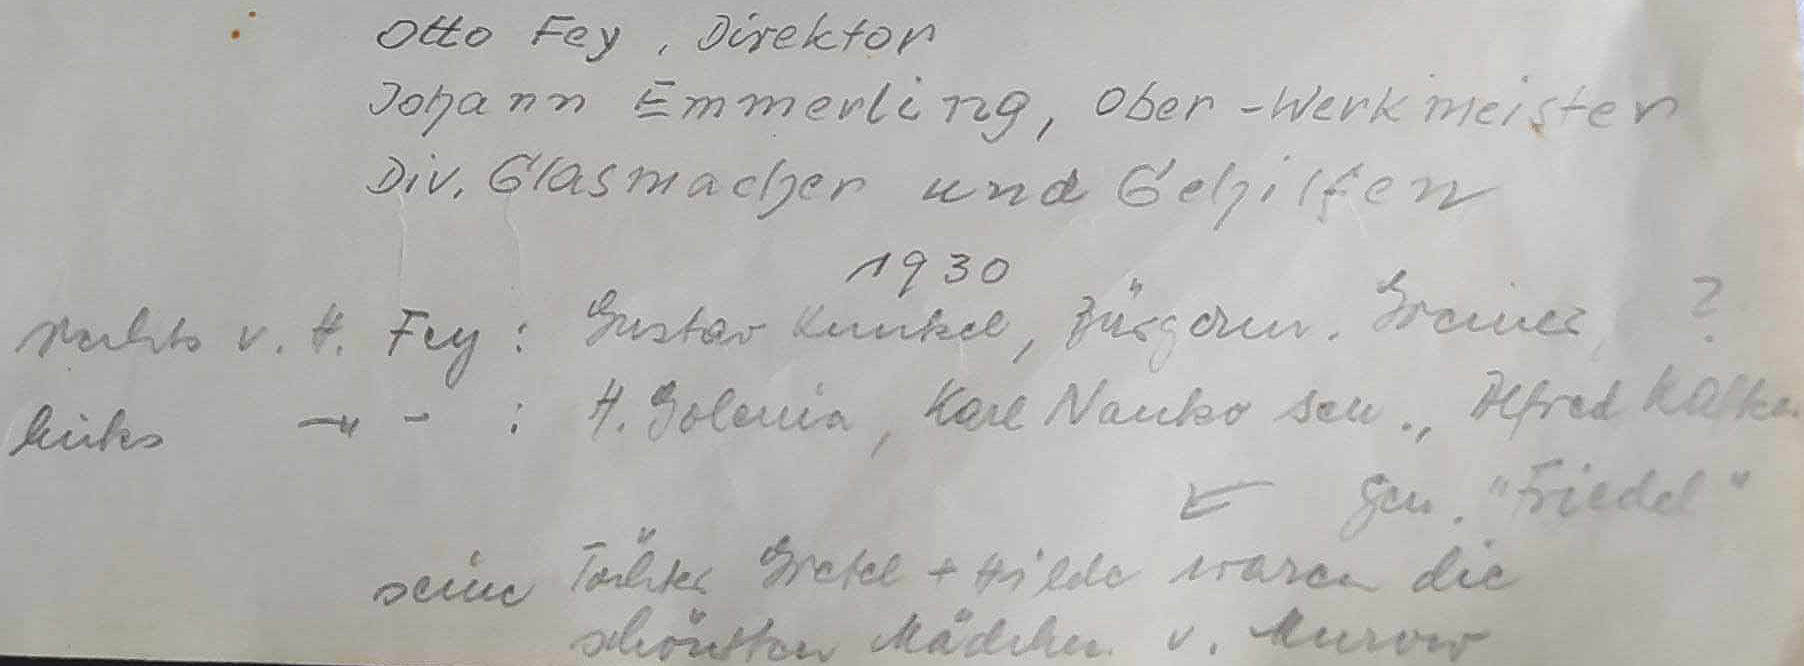 Otto Fey, Direktor
Johann Emmerling, Ober-Werkmeister
Div. Glasmacher und Gehilfen
1930
rechts v. H. Fey : Gustav Kunkel, Bürgerm. Greiner ?
links –"– : H. Golenia, Karl Nanko sen., Alfred
gen. "Friedel"
seine Töchter Gretel + Hilde waren die
schönsten Mädchen v. Murow